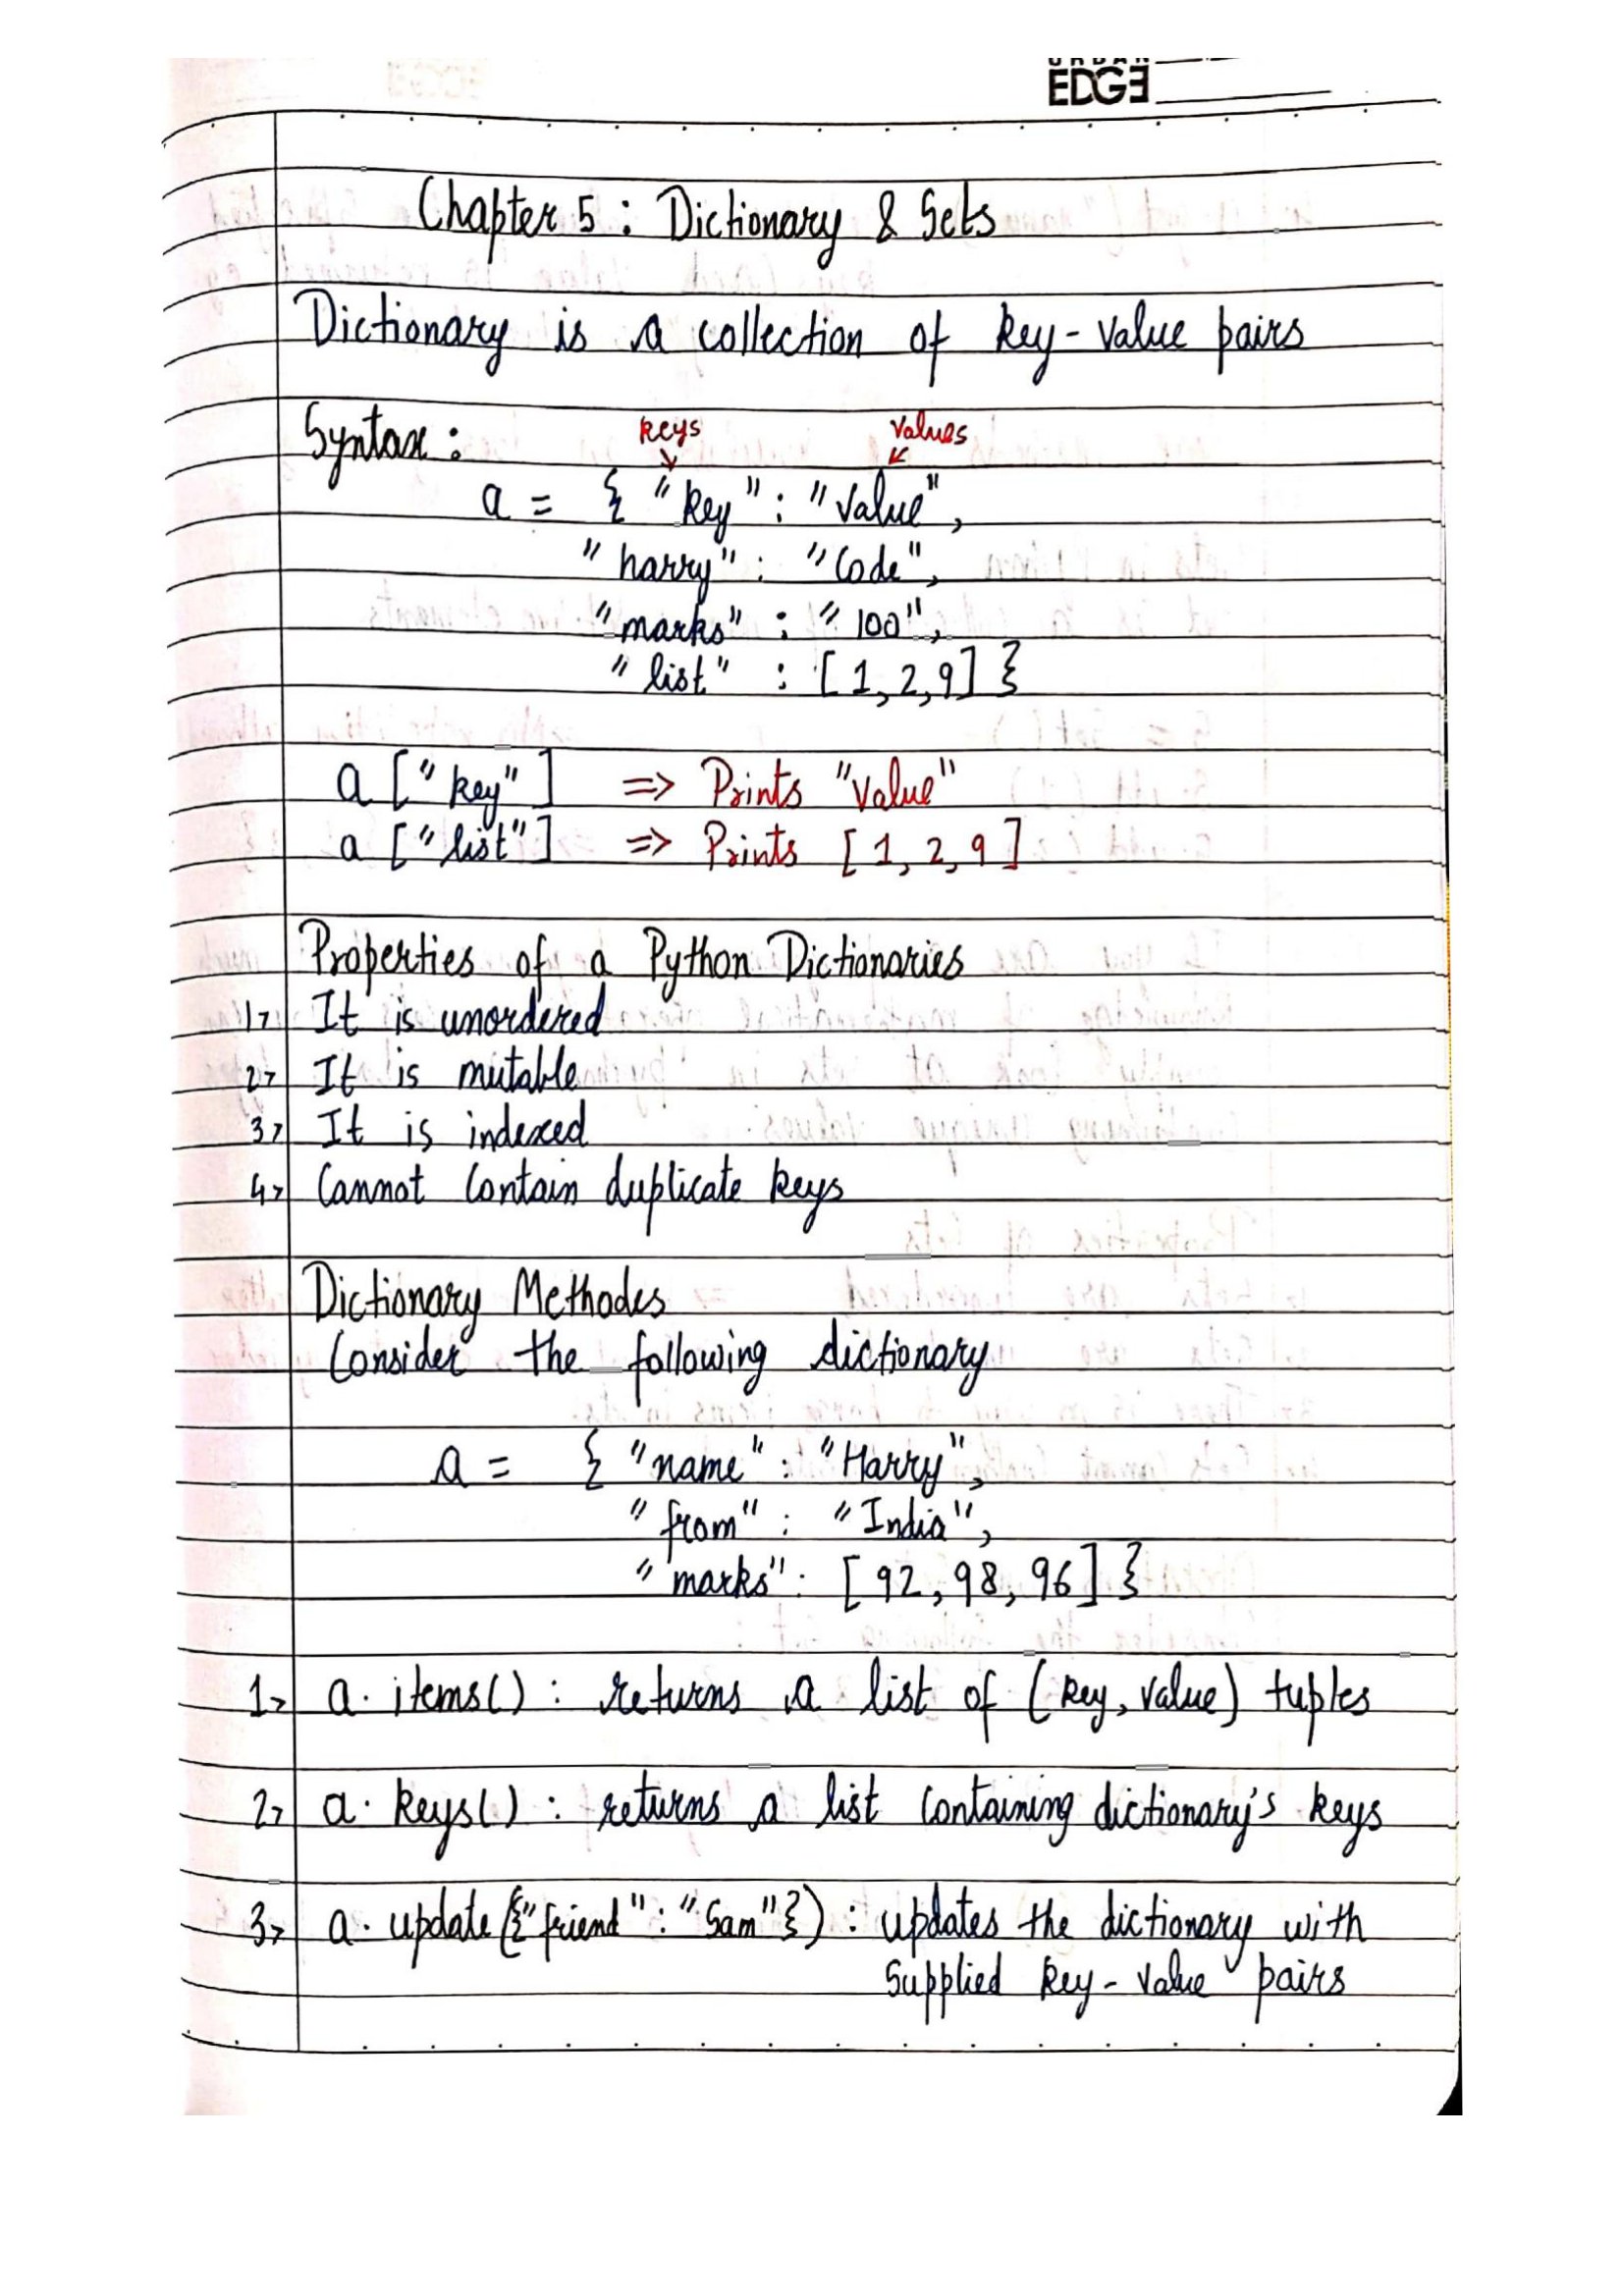 URBAN
EDGE
Chapter 5 : Dictionary & Sets
Dictionary is a collection of key-value pairs
Syntax :
keys values
a = { "key" : "value",
"harry" : "Code",
"marks" : "100",
"list" : [1,2,9] }
a ["key"] => Prints "value"
a ["list"] => Prints [1, 2, 9]
Properties of a Python Dictionaries
1> It is unordered
2> It is mutable
3> It is indexed
4> Cannot Contain duplicate keys
Dictionary Methodes
Consider the following dictionary
a = { "name" : "Harry",
"from" : "India",
"marks" : [92, 98, 96] }
1> a. items() : returns a list of (key, value) tuples
2> a. keys() : returns a list containing dictionary's keys
3> a. update({"friend" : "Sam"}) : updates the dictionary with
Supplied key-value pairs